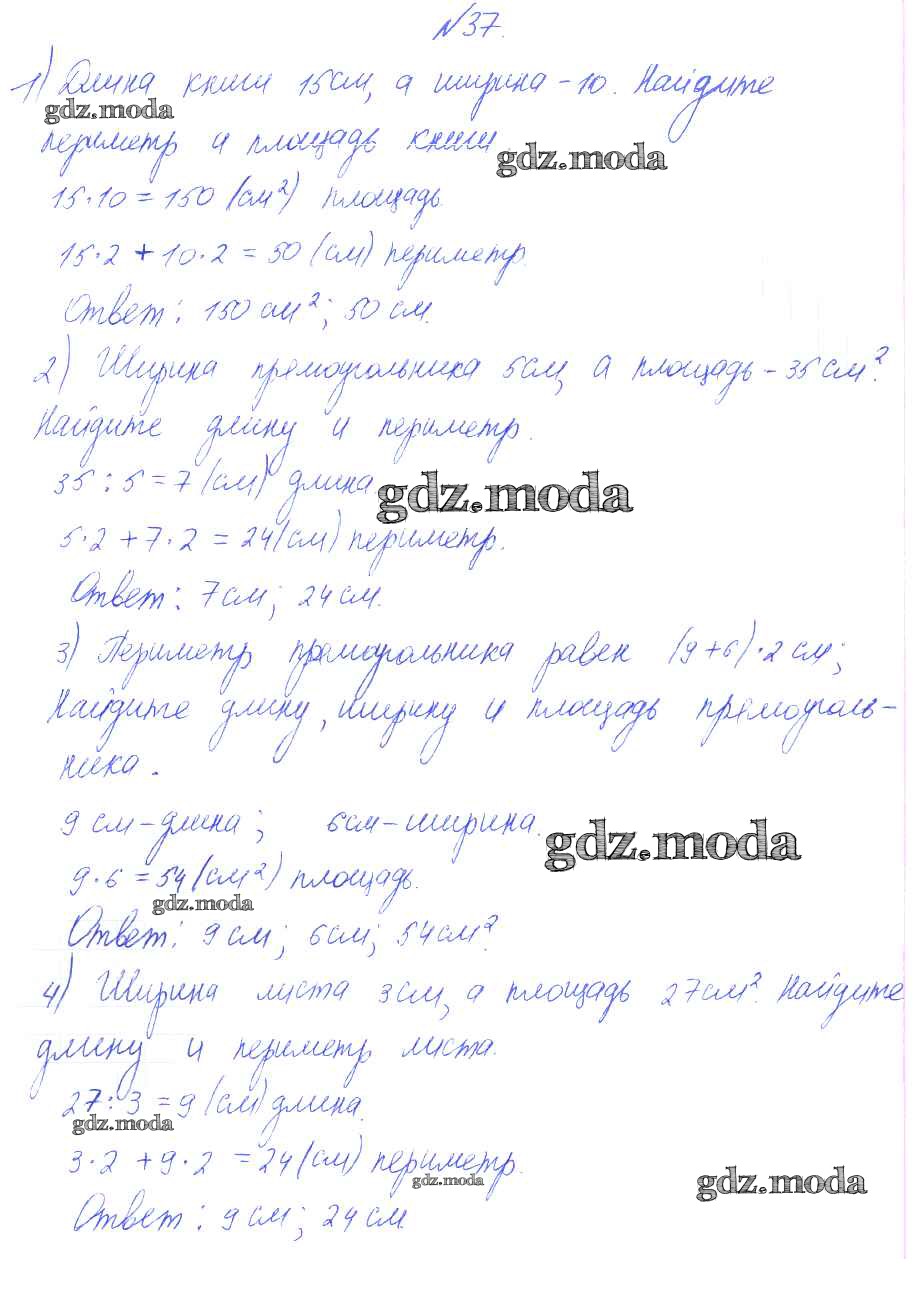 №37.
1) Длина книги 15см, а ширина - 10. Найдите
gdz.moda
периметр и площадь книги.
gdz.moda
15·10 = 150 (см²) площадь.
15·2 + 10·2 = 50 (см) периметр.
Ответ: 150 см²; 50 см.
2) Ширина прямоугольника 5см, а площадь - 35 см².
Найдите длину и периметр.
35 : 5 = 7 (см) длина.
gdz.moda
5·2 + 7·2 = 24(см) периметр.
Ответ: 7см; 24см.
3) Периметр прямоугольника равен (9+6)·2 см;
Найдите длину, ширину и площадь прямоуголь-
ника.
9 см - длина; 6см - ширина.
gdz.moda
9·6 = 54 (см²) площадь.
gdz.moda
Ответ: 9см; 6см; 54см².
4) Ширина листа 3см, а площадь 27см². Найдите
длину и периметр листа.
27 : 3 = 9 (см) длина.
gdz.moda
3·2 + 9·2 = 24(см) периметр.
gdz.moda
gdz.moda
Ответ: 9см; 24см